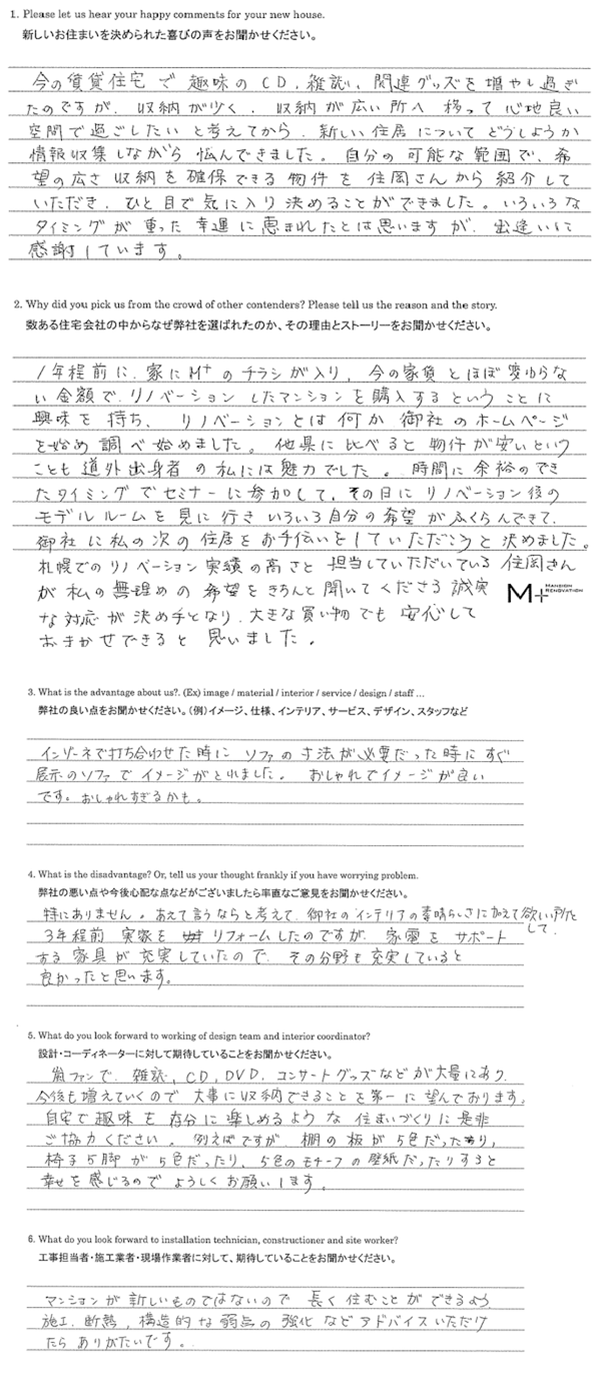 1. Please let us hear your happy comments for your new house.
新しいお住まいを決められた喜びの声をお聞かせください。
今の賃貸住宅で趣味のCD、雑誌、関連グッズを増やし過ぎ
たのですが、収納が少く、収納が広い所へ移って心地良い
空間で過ごしたいと考えてから、新しい住居についてどうしようか
情報収集しながら悩んできました。自分の可能な範囲で、希
望の広さ収納を確保できる物件を住岡さんから紹介して
いただき、ひと目で気に入り決めることができました。いろいろな
タイミングが重った幸運に恵まれたとは思いますが、出逢いに
感謝しています。
2. Why did you pick us from the crowd of other contenders? Please tell us the reason and the story.
数ある住宅会社の中からなぜ弊社を選ばれたのか、その理由とストーリーをお聞かせください。
1年程前に、家にM+のチラシが入り、今の家賃とほぼ変わらな
い金額で、リノベーションしたマンションを購入するということに
興味を持ち、リノベーションとは何か御社のホームページ
を始め調べ始めました。他県に比べると物件が安いという
ことも道外出身者の私には魅力でした。時間に余裕のでき
たタイミングでセミナーに参加して、その日にリノベーション後の
モデルルームを見に行きいろいろ自分の希望がふくらんできて、
御社に私の次の住居をお手伝いをしていただこうと決めました。
札幌でのリノベーション実績の高さと担当していただいている住岡さん
が私の無理めの希望をきちんと聞いてくださる誠実
な対応が決め手となり、大きな買い物でも安心して
おまかせできると思いました。
M+ MANSION RENOVATION
3. What is the advantage about us?. (Ex) image / material / interior / service / design / staff ...
弊社の良い点をお聞かせください。（例）イメージ、仕様、インテリア、サービス、デザイン、スタッフなど
インゾーネで打ち合わせた時にソファの寸法が必要だった時にすぐ
展示のソファでイメージがとれました。おしゃれでイメージが良い
です。おしゃれすぎるかも。
4. What is the disadvantage? Or, tell us your thought frankly if you have worrying problem.
弊社の悪い点や今後心配な点などがございましたら率直なご意見をお聞かせください。
特にありません。あえて言うならと考えて、御社のインテリアの素晴らしさに加えて欲しい所として、
3年程前実家をリフォームしたのですが、家電をサポート
する家具が充実していたので、その分野も充実していると
良かったと思います。
5. What do you look forward to working of design team and interior coordinator?
設計・コーディネーターに対して期待していることをお聞かせください。
嵐ファンで、雑誌、CD、DVD、コンサートグッズなどが大量にあり、
今後も増えていくので大事に収納できることを第一に望んでおります。
自宅で趣味を存分に楽しめるような住まいづくりに是非
ご協力ください。例えばですが、棚の板が5色だったり、
椅子5脚が5色だったり、5色のモチーフの壁紙だったりすると
幸せを感じるのでよろしくお願いします。
6. What do you look forward to installation technician, constructioner and site worker?
工事担当者・施工業者・現場作業者に対して、期待していることをお聞かせください。
マンションが新しいものではないので長く住むことができるよう
施工、断熱、構造的な弱点の強化などアドバイスいただけ
たらありがたいです。